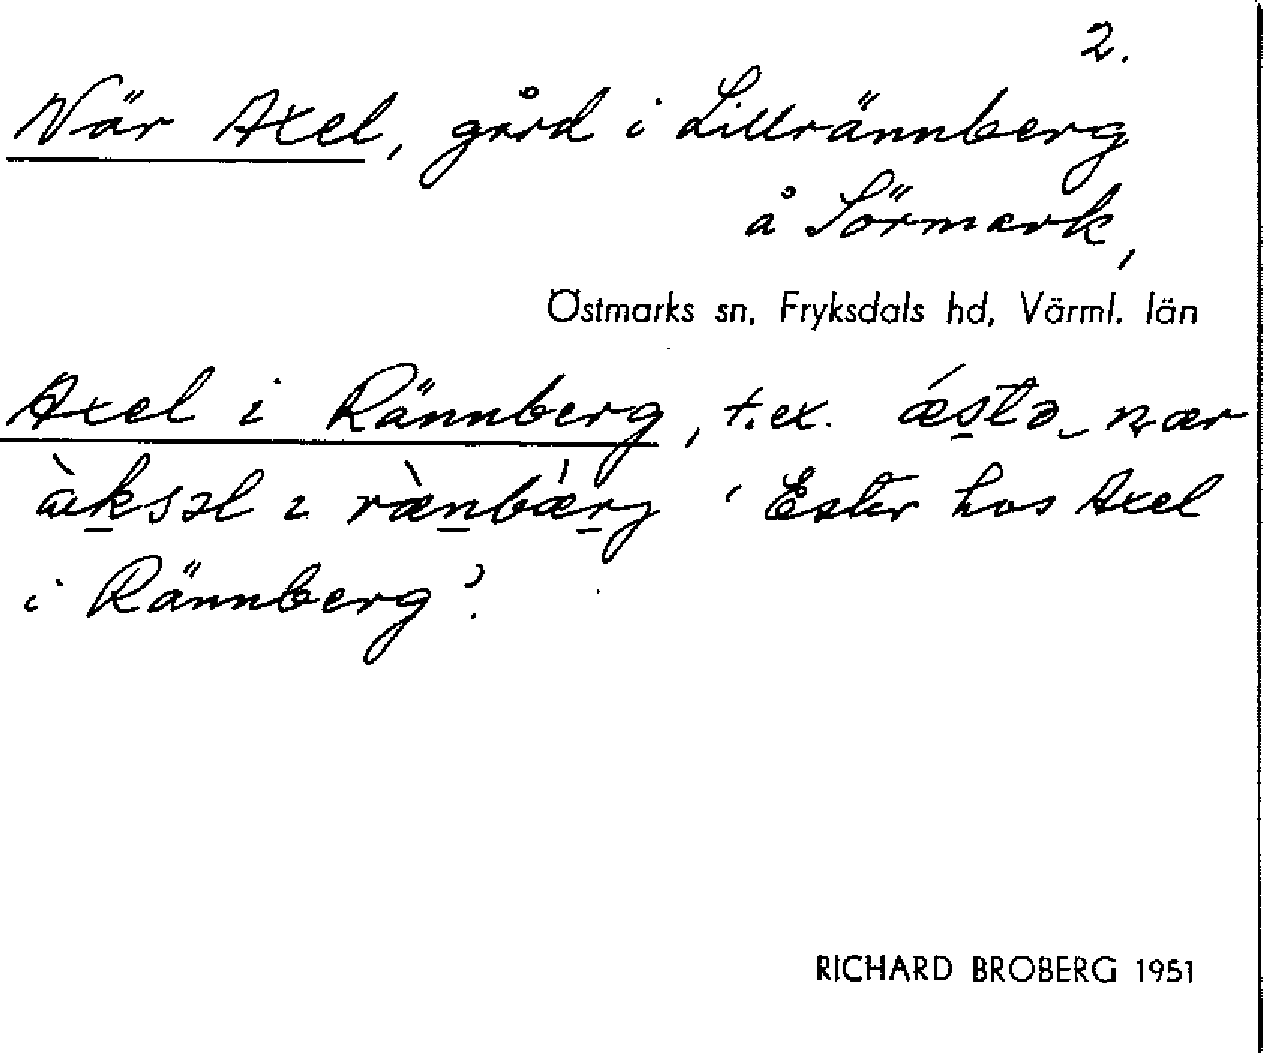 2.
När Axel, gård i Lillrännberg
å Sörmark,
Östmarks sn, Fryksdals hd, Värml. län
Axel i Rännberg, t.ex. ǽstə nær
àksəl ɩ ræ̀nbǽrj 'Ester hos Axel
i Rännberg'.
RICHARD BROBERG 1951